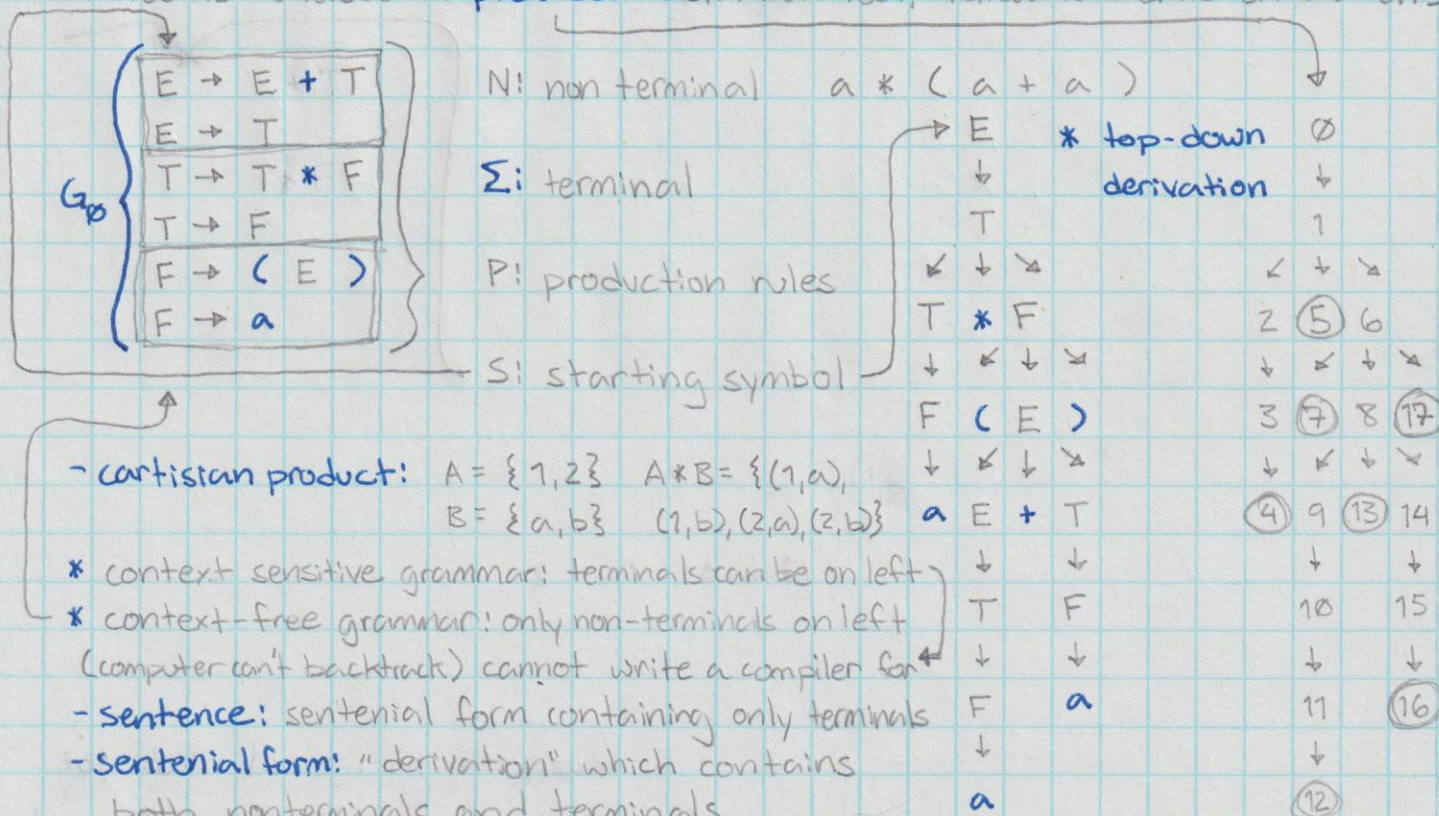 E → E + T
E → T
T → T * F
T → F
F → ( E )
F → a
G∅
N: non terminal
Σ: terminal
P: production rules
S: starting symbol
a * ( a + a )
E
* top-down
derivation
T
T * F
F ( E )
a E + T
T F
F a
a
∅
1
2 5 6
3 7 8 17
4 9 13 14
10 15
11 16
12
- cartisian product: A = {1,2} A*B = {(1,a),
B = {a,b} (1,b),(2,a),(2,b)}
* context sensitive grammar: terminals can be on left
* context-free grammar: only non-terminals on left
(computer can't backtrack) cannot write a compiler for
- sentence: sentenial form containing only terminals
- sentenial form: "derivation" which contains
both nonterminals and terminals